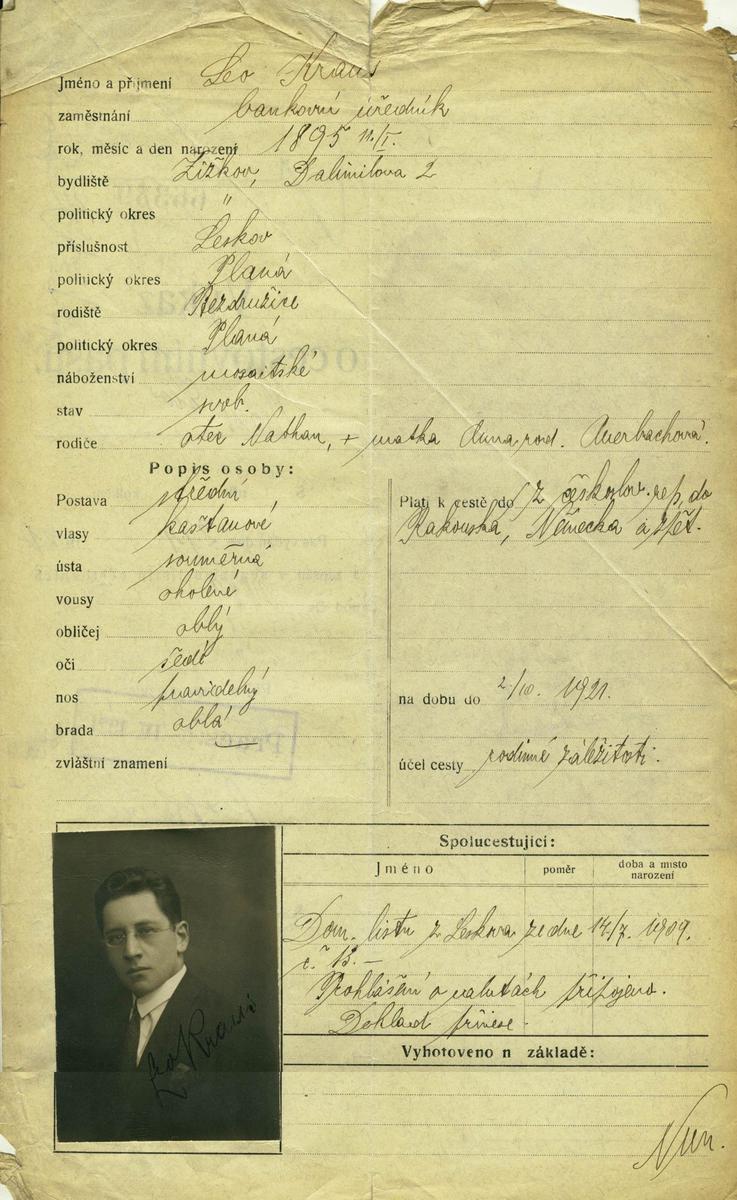 Jméno a příjmení Leo Kraus
zaměstnání bankovní úředník
rok, měsíc a den narození 1895 11/I.
bydliště Žižkov, Dalimilova 2
politický okres "
příslušnost Leskov
politický okres Planá
rodiště Bezdružice
politický okres Planá
náboženství mosaitské
stav svob.
rodiče otec Nathan, + matka Anna rod. Auerbachová.
Popis osoby:
Postava střední
vlasy kaštanové
ústa souměrná
vousy oholené
obličej oblý
oči šedé
nos pravidelný
brada oblá
zvláštní znamení
Platí k cestě do z českoslov. rep. do
Rakouska, Německa a zpět.
na dobu do 2/10. 1921.
účel cesty rodinné záležitosti.
Spolucestující:
Jméno poměr doba a místo narození
Dom. listu z Leskova ze dne 14/7. 1909.
č. 13. —
Prohlášení o valutách připojeno.
Doklad přinese.
Vyhotoveno n základě:
Leo Kraus